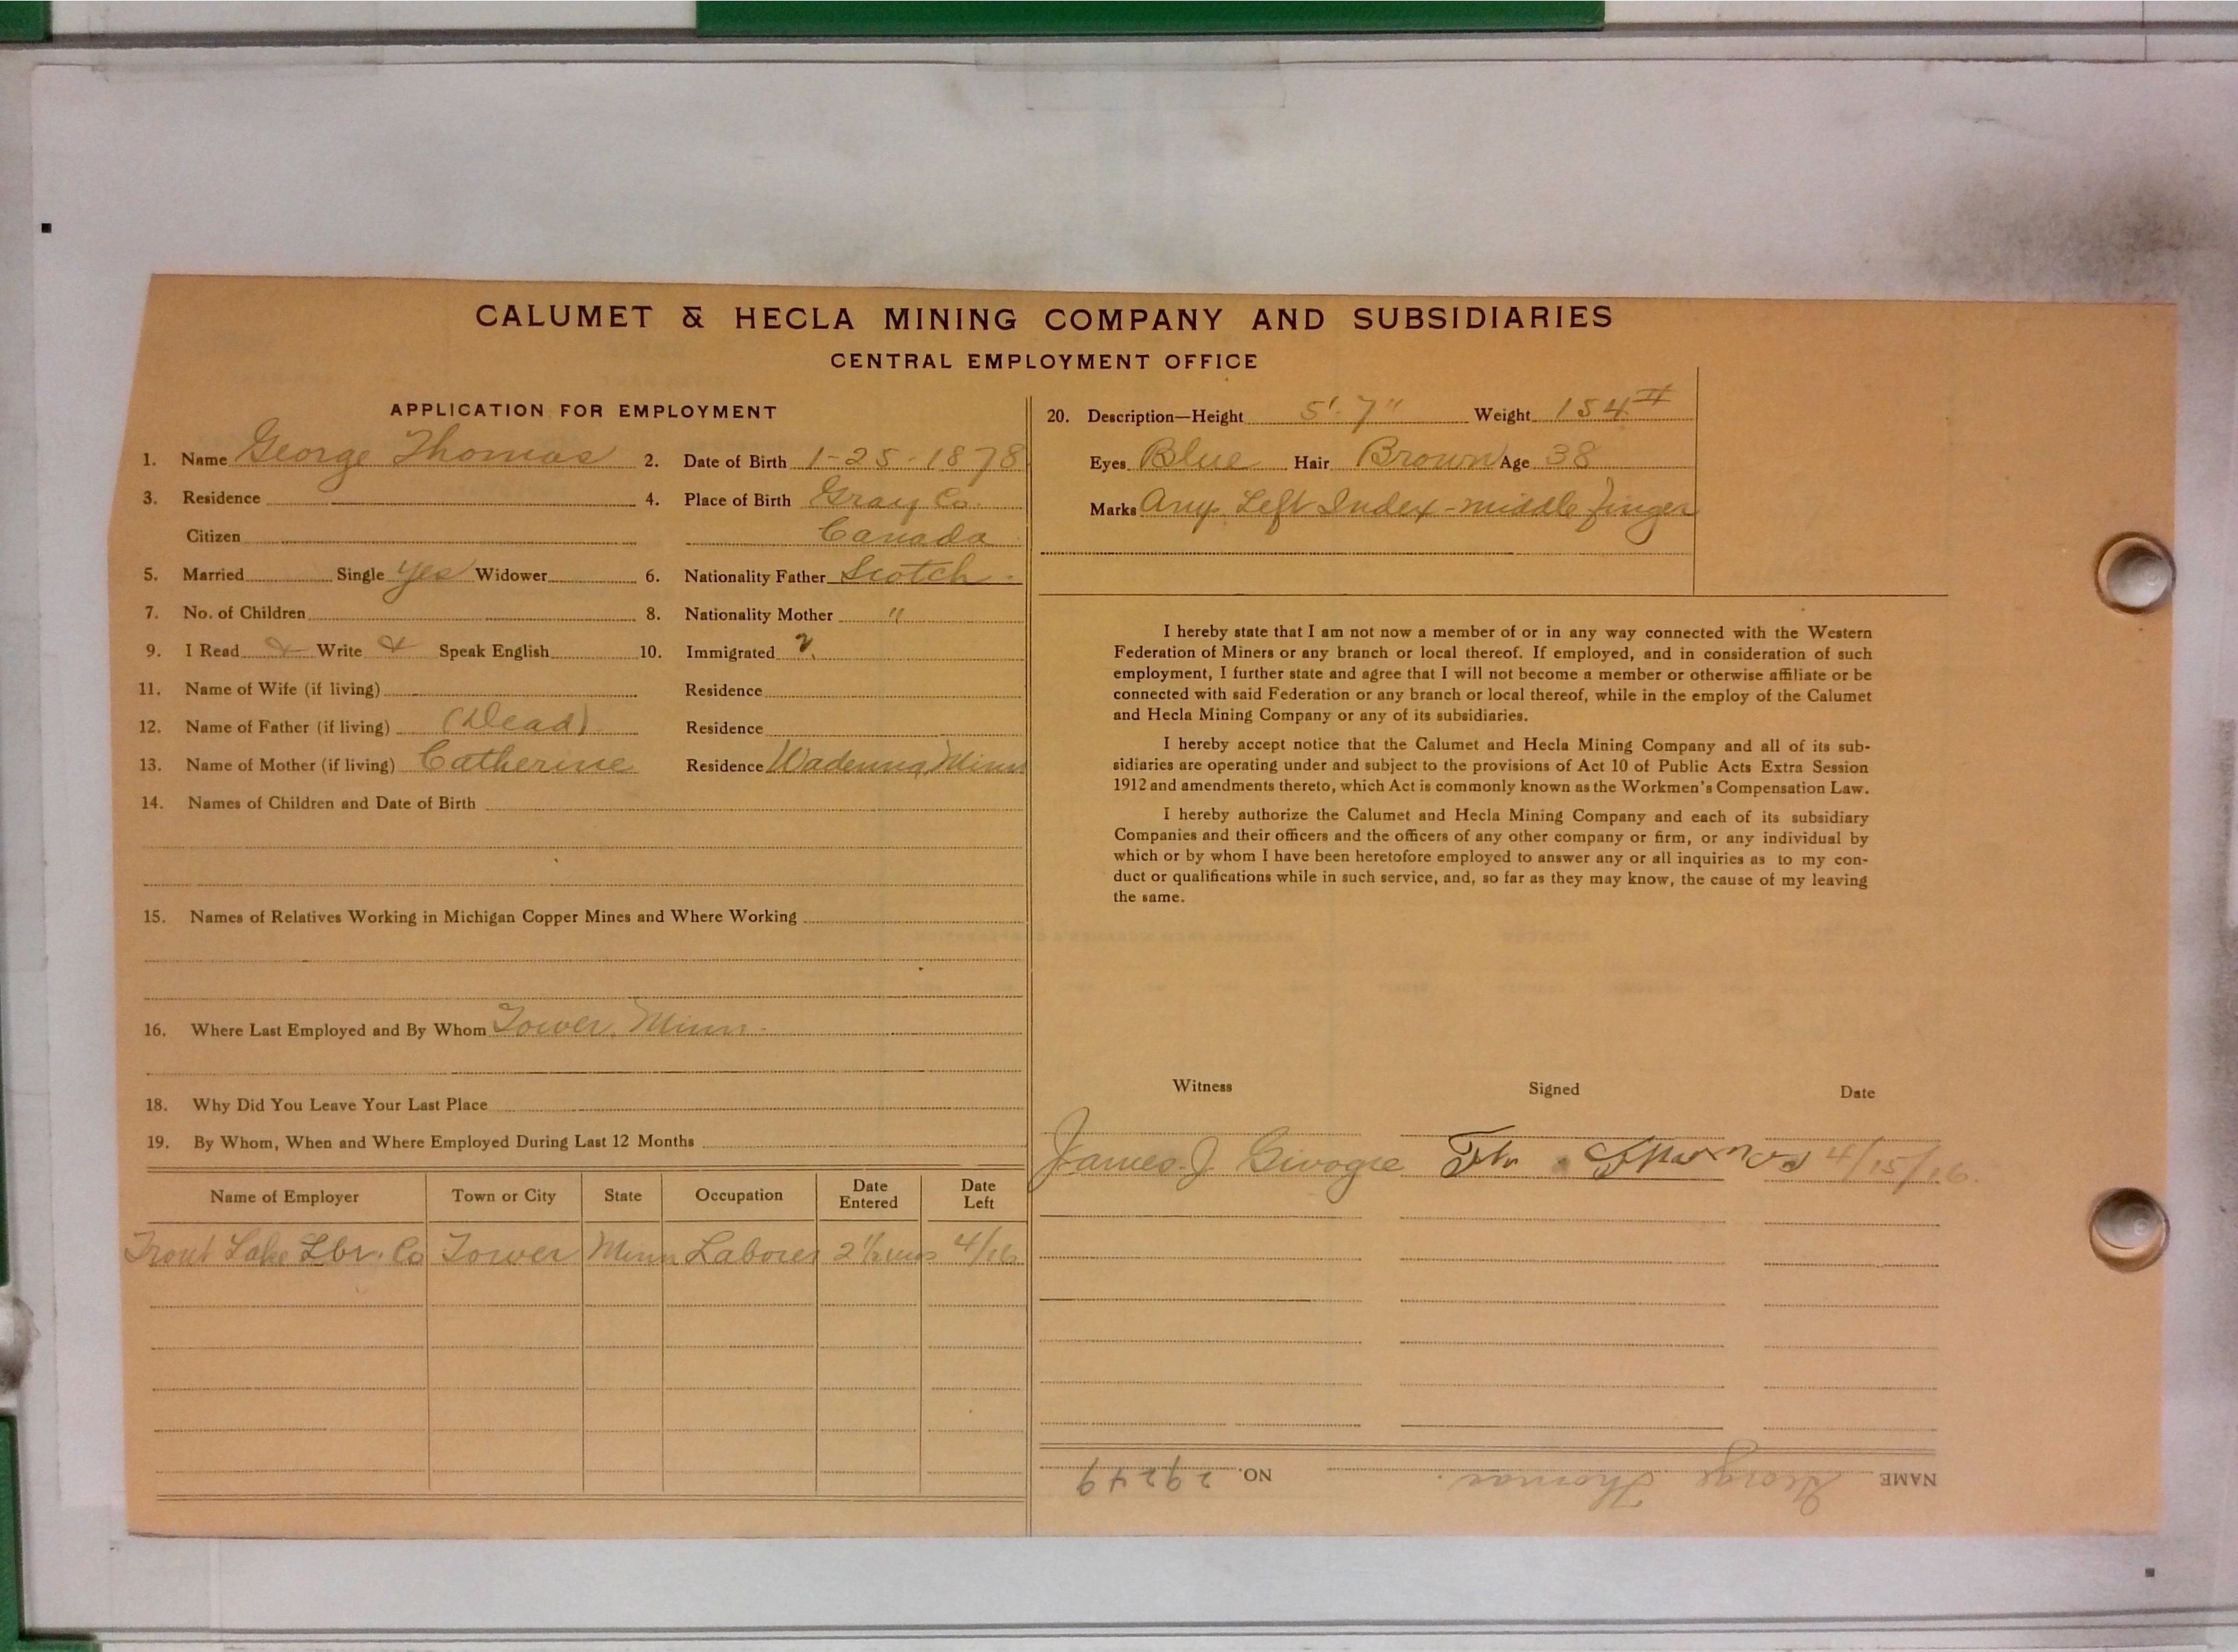 CALUMET & HECLA MINING COMPANY AND SUBSIDIARIES
CENTRAL EMPLOYMENT OFFICE
APPLICATION FOR EMPLOYMENT
1. Name George Thomas 2. Date of Birth 1-25-1878
3. Residence 4. Place of Birth Gray Co.
Citizen Canada
5. Married Single yes Widower 6. Nationality Father Scotch
7. No. of Children 8. Nationality Mother "
9. I Read Write Speak English 10. Immigrated
11. Name of Wife (if living) Residence
12. Name of Father (if living) (Dead) Residence
13. Name of Mother (if living) Catherine Residence Wadenna, Minn
14. Names of Children and Date of Birth
15. Names of Relatives Working in Michigan Copper Mines and Where Working
16. Where Last Employed and By Whom Tower, Minn.
18. Why Did You Leave Your Last Place
19. By Whom, When and Where Employed During Last 12 Months
Name of Employer Town or City State Occupation Date Entered Date Left
Trout Lake Lbr. Co Tower Minn Laborer 2 1/2 4/16
20. Description—Height 5'-7" Weight 154
Eyes Blue Hair Brown Age 38
Marks Amp. Left Index - middle finger
I hereby state that I am not now a member of or in any way connected with the Western
Federation of Miners or any branch or local thereof. If employed, and in consideration of such
employment, I further state and agree that I will not become a member or otherwise affiliate or be
connected with said Federation or any branch or local thereof, while in the employ of the Calumet
and Hecla Mining Company or any of its subsidiaries.
I hereby accept notice that the Calumet and Hecla Mining Company and all of its sub-
sidiaries are operating under and subject to the provisions of Act 10 of Public Acts Extra Session
1912 and amendments thereto, which Act is commonly known as the Workmen's Compensation Law.
I hereby authorize the Calumet and Hecla Mining Company and each of its subsidiary
Companies and their officers and the officers of any other company or firm, or any individual by
which or by whom I have been heretofore employed to answer any or all inquiries as to my con-
duct or qualifications while in such service, and, so far as they may know, the cause of my leaving
the same.
Witness Signed Date
James J 4/15/16.
NAME George Thomas. NO. 29249